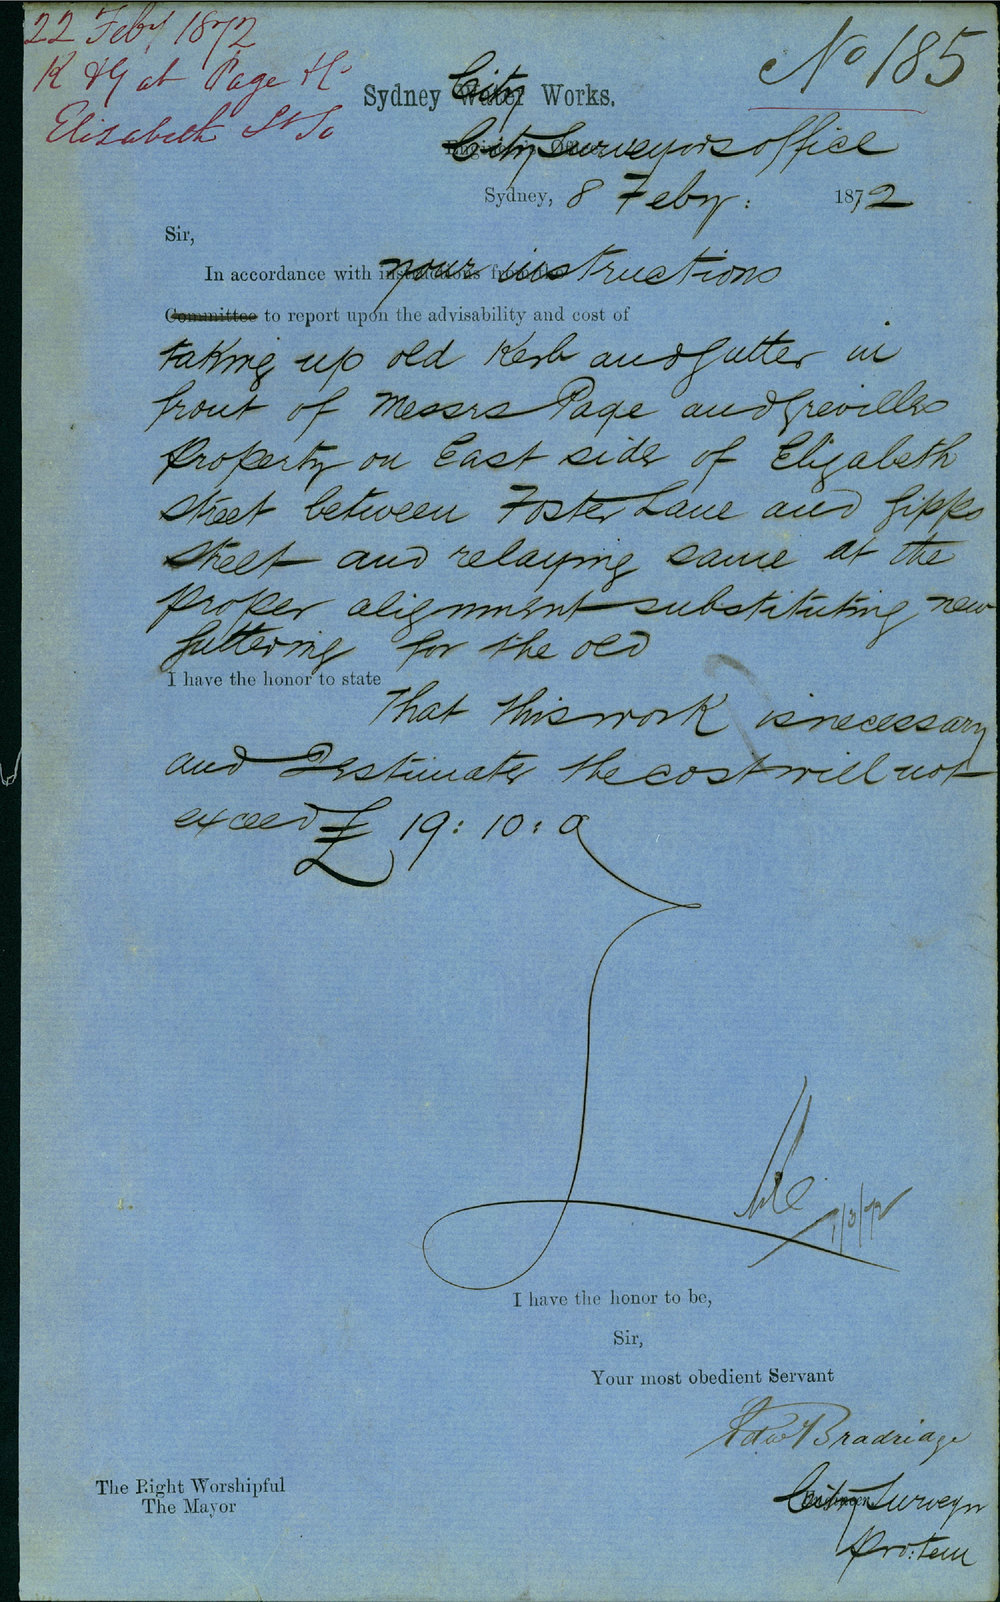 22 Feby 1872
K & G at Page &c
Elizabeth St So
No 185
Sydney City Water Works.
City Surveyors office
Sydney, 8 Feby: 1872
Sir,
In accordance with instructions from the your instructions
Committee to report upon the advisability and cost of
taking up old Kerb and gutter in
front of Messrs Page and Grevilles
property on East side of Elizabeth
street between Foster Lane and Gipps
street and relaying same at the
proper alignment substituting new
guttering for the old
I have the honor to state
that this work is necessary
and I estimate the cost will not
exceed £ 19: 10: 0
1/3/72
I have the honor to be,
Sir,
Your most obedient Servant
Edwd Bradridge
City Surveyor
Pro: tem
The Right Worshipful
The Mayor